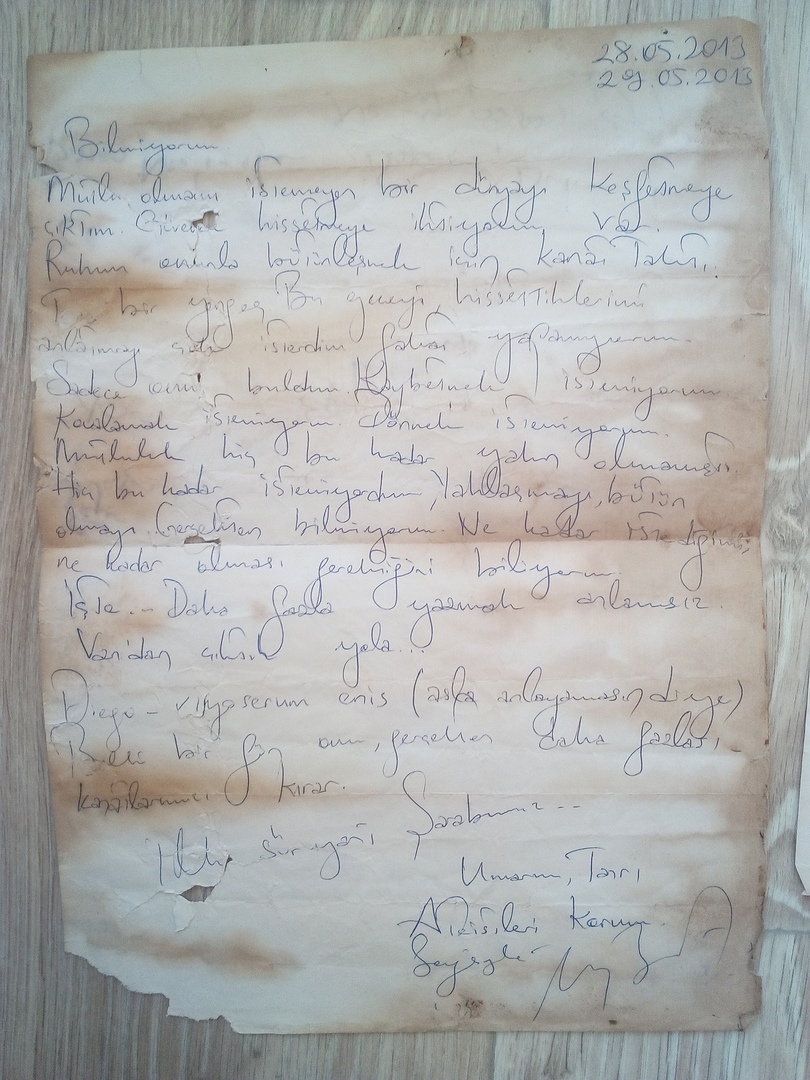 28.05.2013
29.05.2013
Bilmiyorum
Mutlu olmamı istemeyen bir dünyayı keşfetmeye
çıktım. Güvende hissetmeye ihtiyacım var.
Ruhum onunla bütünleşmek için kanat
bir Bu geceyi, hissettiklerimi
isterdim fakat yapamıyorum.
Sadece onu buldum. Kaybetmek istemiyorum
Kovalamak istemiyorum. Dönmek istemiyorum.
Mutluluk hiç bu kadar yakın olmamıştı.
Hiç bu kadar istemiyordum, Yaklaşmayı, bütün
olmayı. Gerçekten bilmiyorum. Ne kadar istediğimi,
ne kadar olması gerektiğini biliyorum.
İşte... Daha fazla yazmak anlamsız.
Van'dan çıktık yola...
Diego - enis (aşka anlayamasın diye)
Belki bir gün onu, gerçekten daha fazlası
kanatlarımızı kırar.
Şarabımız...
Umarım, Tanrı
Ateistleri Korur.